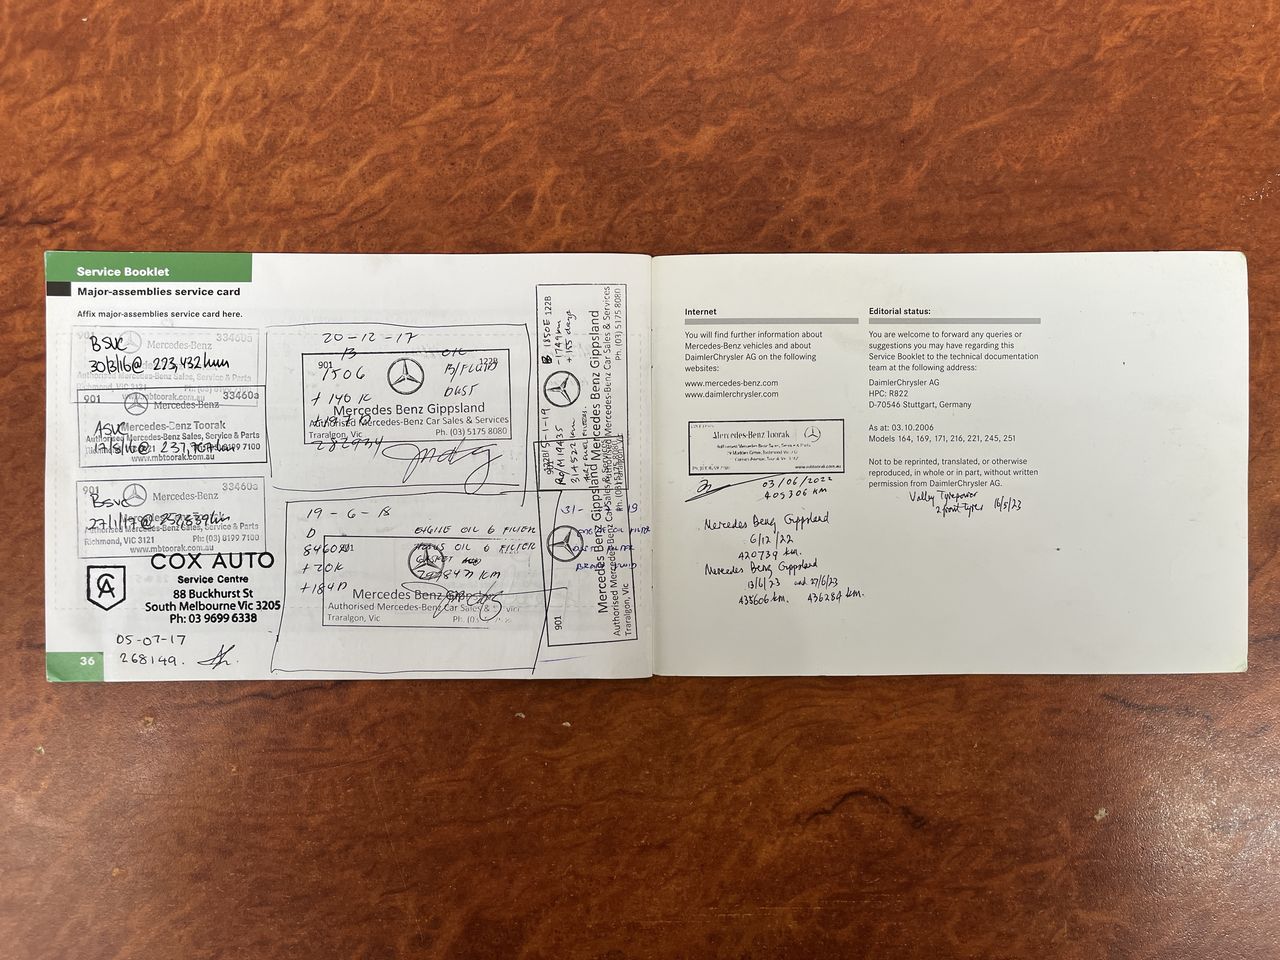 Service Booklet
Major-assemblies service card
Affix major-assemblies service card here.
901
33460a
Mercedes-Benz
B SVC
30/3/16@ 223,432 km
Authorised Mercedes-Benz Sales, Service & Parts
Richmond, VIC 3121
www.mbtoorak.com.au
901
33460a
Mercedes-Benz
Mercedes-Benz Toorak
A SVC
Authorised Mercedes-Benz Sales, Service & Parts
Ph: (03) 8199 7100
www.mbtoorak.com.au
901
33460a
Mercedes-Benz
B SVC
27/1/17@
Authorised Mercedes-Benz Sales, Service & Parts
Richmond, VIC 3121 Ph: (03) 8199 7100
www.mbtoorak.com.au
COX AUTO
Service Centre
88 Buckhurst St
South Melbourne Vic 3205
Ph: 03 9699 6338
05-07-17
268149.
36
20-12-17
B
OIL
901
122B
1506
B/FLUID
+ 140 K
DUST
Mercedes Benz Gippsland
Authorised Mercedes-Benz Car Sales & Services
Traralgon, Vic Ph: (03) 5175 8080
282934
19-6-18
D ENGINE OIL & FILTER
OIL & FILTER
+20K GASKET
KM
+184D
Mercedes Benz Gippsland
Authorised Mercedes-Benz Car Sales &
Traralgon, Vic Ph: (03)
B 1850E 122B
-1749 km
+155 days
-1-19
314522 km
Mercedes Benz Gippsland
Authorised Mercedes-Benz Car Sales & Services
Ph: (03) 5175 8080
31- 19
ENGINE OIL FILTER
DUST FILTER
BRAKE FLUID
901
Mercedes Benz Gippsland
Authorised Mercedes-Benz Car Sales & Services
Traralgon, Vic Ph: (03) 5175 8080
Internet
You will find further information about
Mercedes-Benz vehicles and about
DaimlerChrysler AG on the following
websites:
www.mercedes-benz.com
www.daimlerchrysler.com
Mercedes-Benz Toorak
www.mbtoorak.com.au
03/06/2022
405306 KM
Mercedes Benz Gippsland
6/12/22
420739 km.
Mercedes Benz Gippsland
13/6/23 and 27/6/23
435606 km. 436284 km.
Editorial status:
You are welcome to forward any queries or
suggestions you may have regarding this
Service Booklet to the technical documentation
team at the following address:
DaimlerChrysler AG
HPC: R822
D-70546 Stuttgart, Germany
As at: 03.10.2006
Models 164, 169, 171, 216, 221, 245, 251
Not to be reprinted, translated, or otherwise
reproduced, in whole or in part, without written
permission from DaimlerChrysler AG.
Valley Tyrepower
2 front tyres 16/5/23